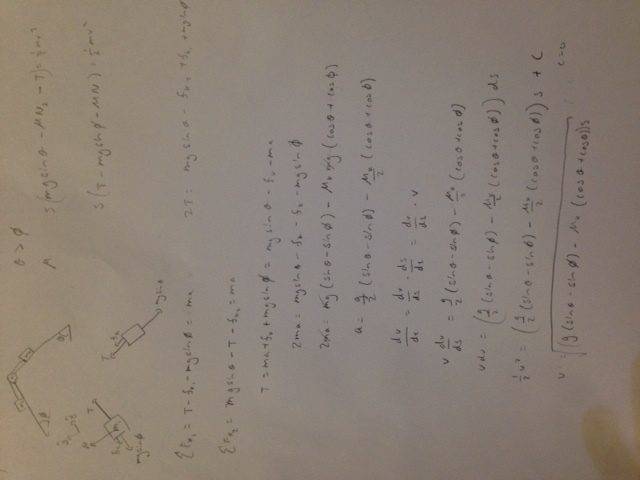 θ > φ
μ
s(mg sinθ - μN₂ - T) = ½mv²
s(T - mg sinφ - μN) = ½mv²
ΣF_x₁ = T - f_k₁ - mg sinφ = ma
ΣF_x₂ = mg sinθ - T - f_k₂ = ma
T = ma + f_k + mg sinφ = mg sinθ - f_k - ma
2ma = mg sinθ - f_k - f_k - mg sinφ
2ma = mg(sinθ - sinφ) - μ_k mg(cosθ + cosφ)
a = g/2 (sinθ - sinφ) - μ_k/2 (cosθ + cosφ)
dv/dt = dv/ds · ds/dt = dv/ds · v
v dv/ds = g/2 (sinθ - sinφ) - μ_k/2 (cosθ + cosφ)
v dv = (g/2 (sinθ - sinφ) - μ_k/2 (cosθ + cosφ)) ds
½v² = (g/2 (sinθ - sinφ) - μ_k/2 (cosθ + cosφ)) s + C
C = 0
v = √(g(sinθ - sinφ) - μ_k (cosθ + cosφ))s